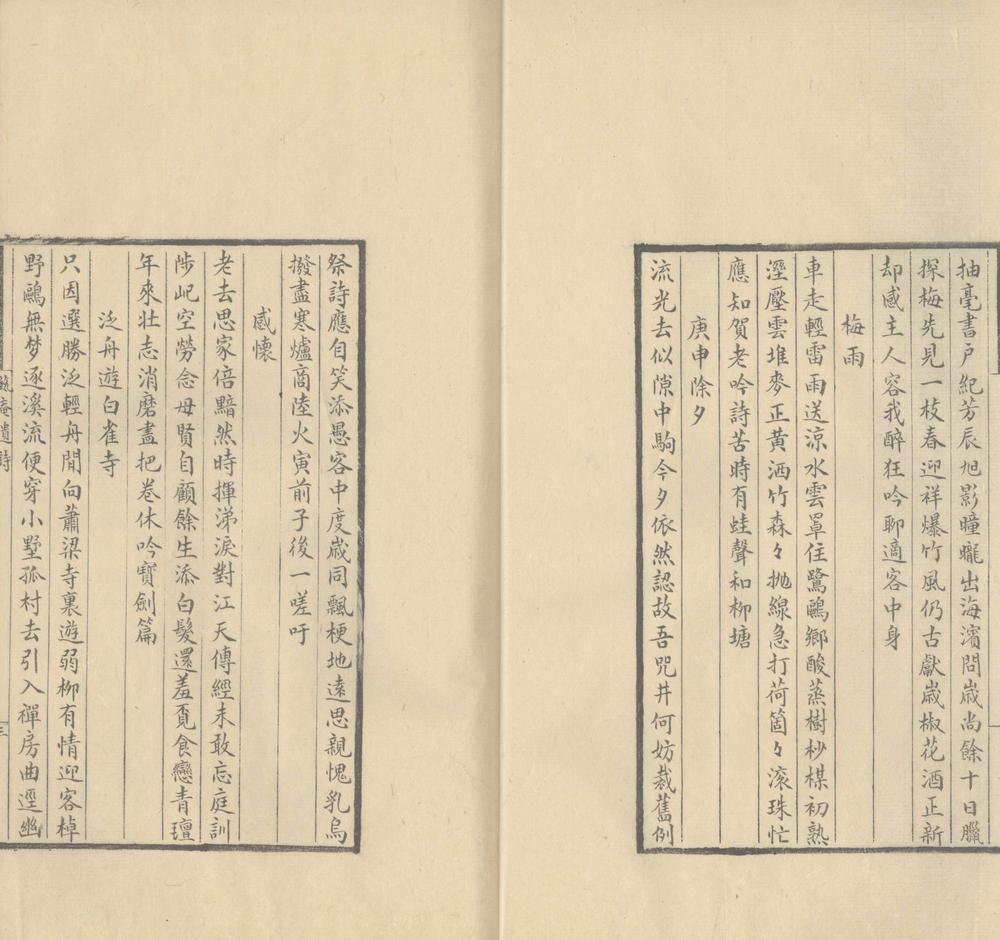 抽毫書戶紀芳辰旭影曈曨出海濱問歲尚餘十日臘
探梅先見一枝春迎祥爆竹風仍古獻歲椒花酒正新
却感主人容我醉狂吟聊適客中身
梅雨
車走輕雷雨送涼水雲罩住鷺鷗鄉酸蒸樹杪楳初熟
溼壓雲堆麥正黃洒竹森々拋線急打荷箇々滚珠忙
應知賀老吟詩苦時有蛙聲和柳塘
庚申除夕
流光去似隙中駒今夕依然認故吾咒井何妨裁舊例
祭詩應自笑添愚客中度歲同飄梗地遠思親愧乳烏
撥盡寒爐商陸火寅前子後一嗟吁
感懷
老去思家倍黯然時揮涕淚對江天傳經未敢忘庭訓
陟屺空勞念母賢自顧餘生添白髮還羞覓食戀青氊
年來壯志消磨盡把卷休吟寶劍篇
泛舟遊白雀寺
只因選勝泛輕舟閒向蕭梁寺裏遊弱柳有情迎客棹
野鷗無梦逐溪流便穿小墅孤村去引入禪房曲逕幽
庵遺詩
三